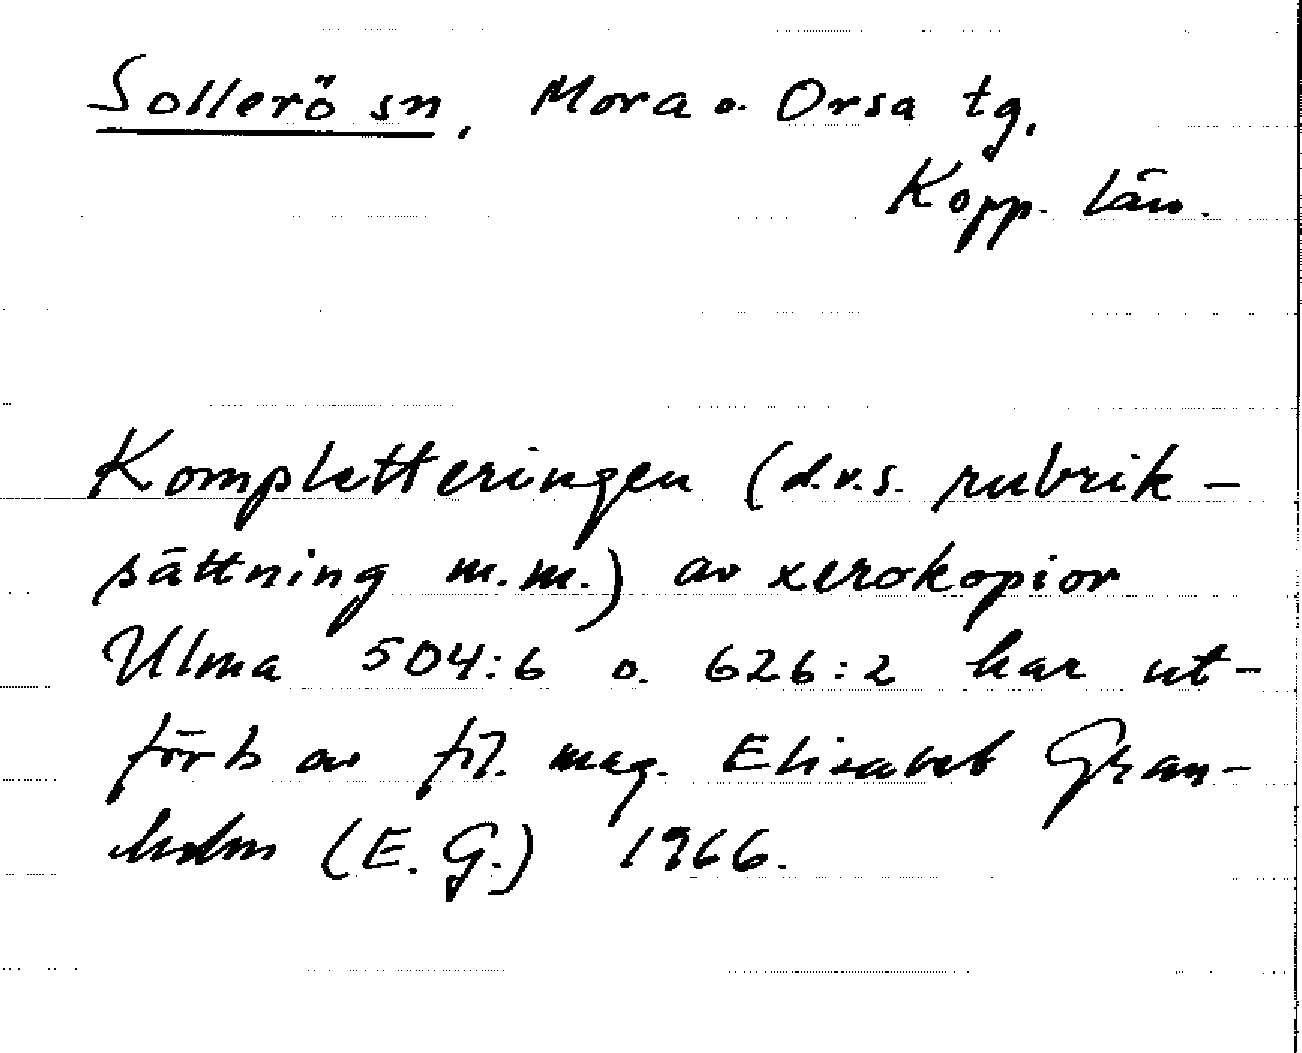 Sollerö sn, Mora o. Orsa tg,
Kopp. län.
Kompletteringen (d.v.s. rubrik-
sättning m.m.) av xerokopior
Ulma 504:6 o. 626:2 har ut-
förts av fil. mag. Elisabet Gran-
holm (E. G.) 1966.